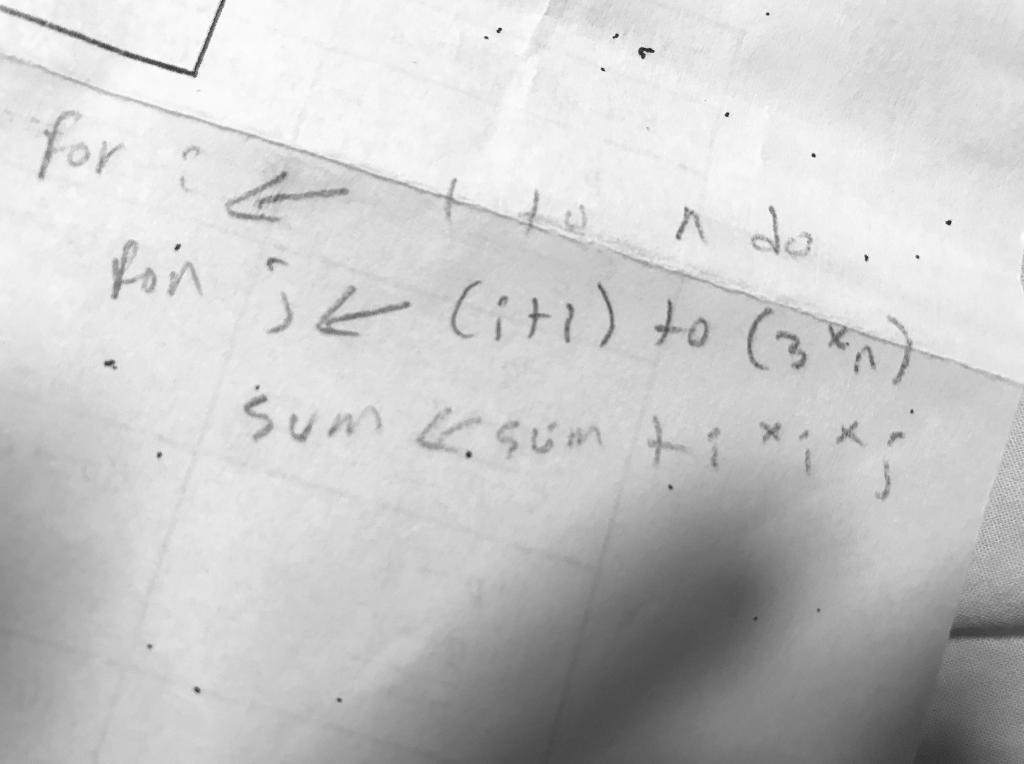 for i ← 1 to n do
for j ← (i+1) to (3*n)
sum ← sum + i * i * j